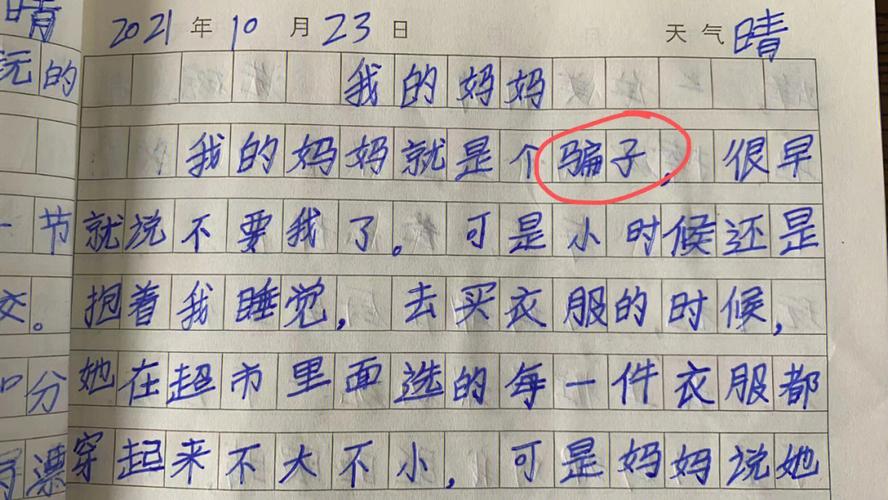 晴
2021年10月23日 天气晴
沅的
我的妈妈
我的妈妈就是个骗子，很早
一节
就说不要我了。可是小时候还是
交。
抱着我睡觉，去买衣服的时候，
分
她在超市里面选的每一件衣服都
漂
穿起来不大不小，可是妈妈说她